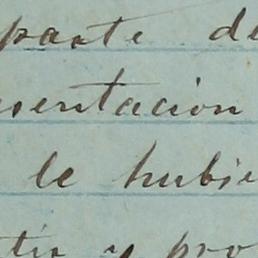 parte de
sentacion
le hubie
tir y pro